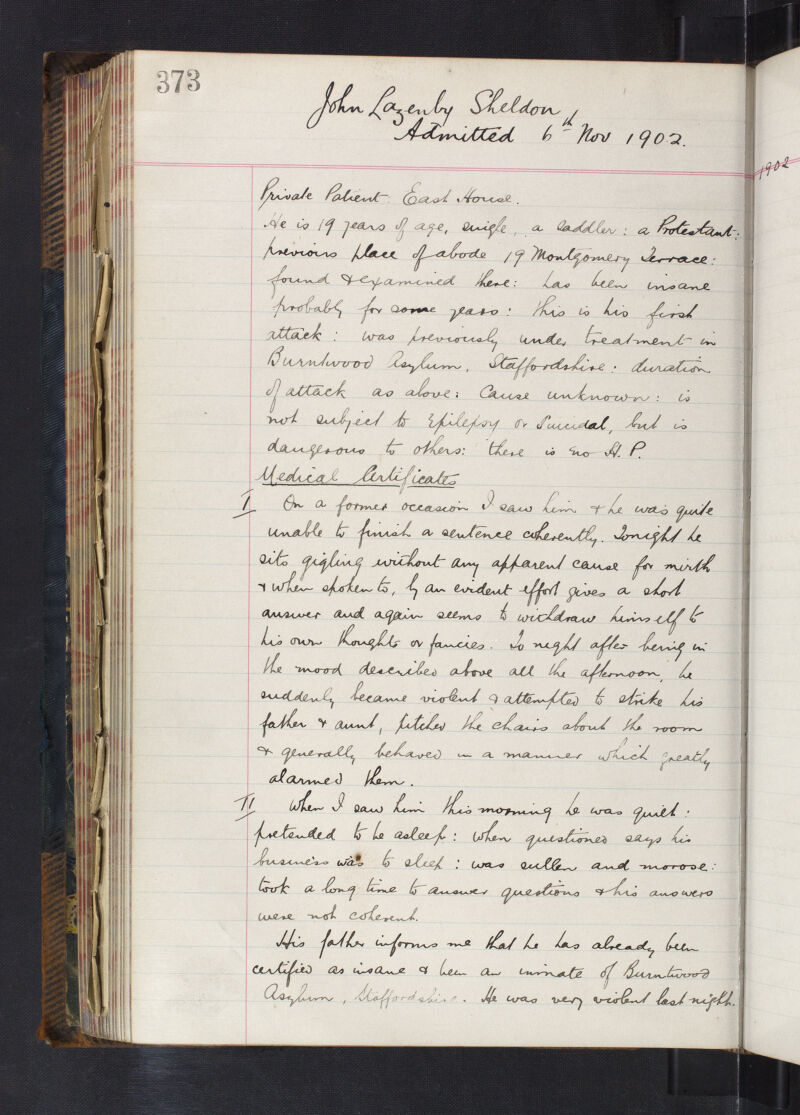 373
John Lazenby Sheldon
Admitted 6th Nov 1902.
1902
Private Patient East House.
He is 19 years of age, single, a saddler: a Protestant:
previous place of abode 19 Montgomery Terrace:
found & examined there: has been insane
probably for some years: this is his first
attack: was previously under treatment in
Burntwood Asylum, Staffordshire: duration
of attack as above: Cause unknown: is
not subject to Epilepsy or Suicidal, but is
dangerous to others: there is no H. P.
Medical Certificates
I On a former occasion I saw him & he was quite
unable to finish a sentence coherently. Tonight he
sits gigling without any apparent cause for mirth
& when spoken to, by an evident effort gives a short
answer and again seems to withdraw himself to
his own thoughts or fancies. To night after being in
the mood described above all the afternoon, he
suddenly became violent & attempted to strike his
father & aunt, pitched the chairs about the room
& generally behaved in a manner which greatly
alarmed them.
II When I saw him this morning he was quiet:
pretended to be asleep: when questioned says his
business was to sleep: was sullen and morose:
took a long time to answer questions & his answers
were not coherent.
His father informs me that he has already been
certified as insane & been an inmate of Burntwood
Asylum, Staffordshire. He was very violent last night.